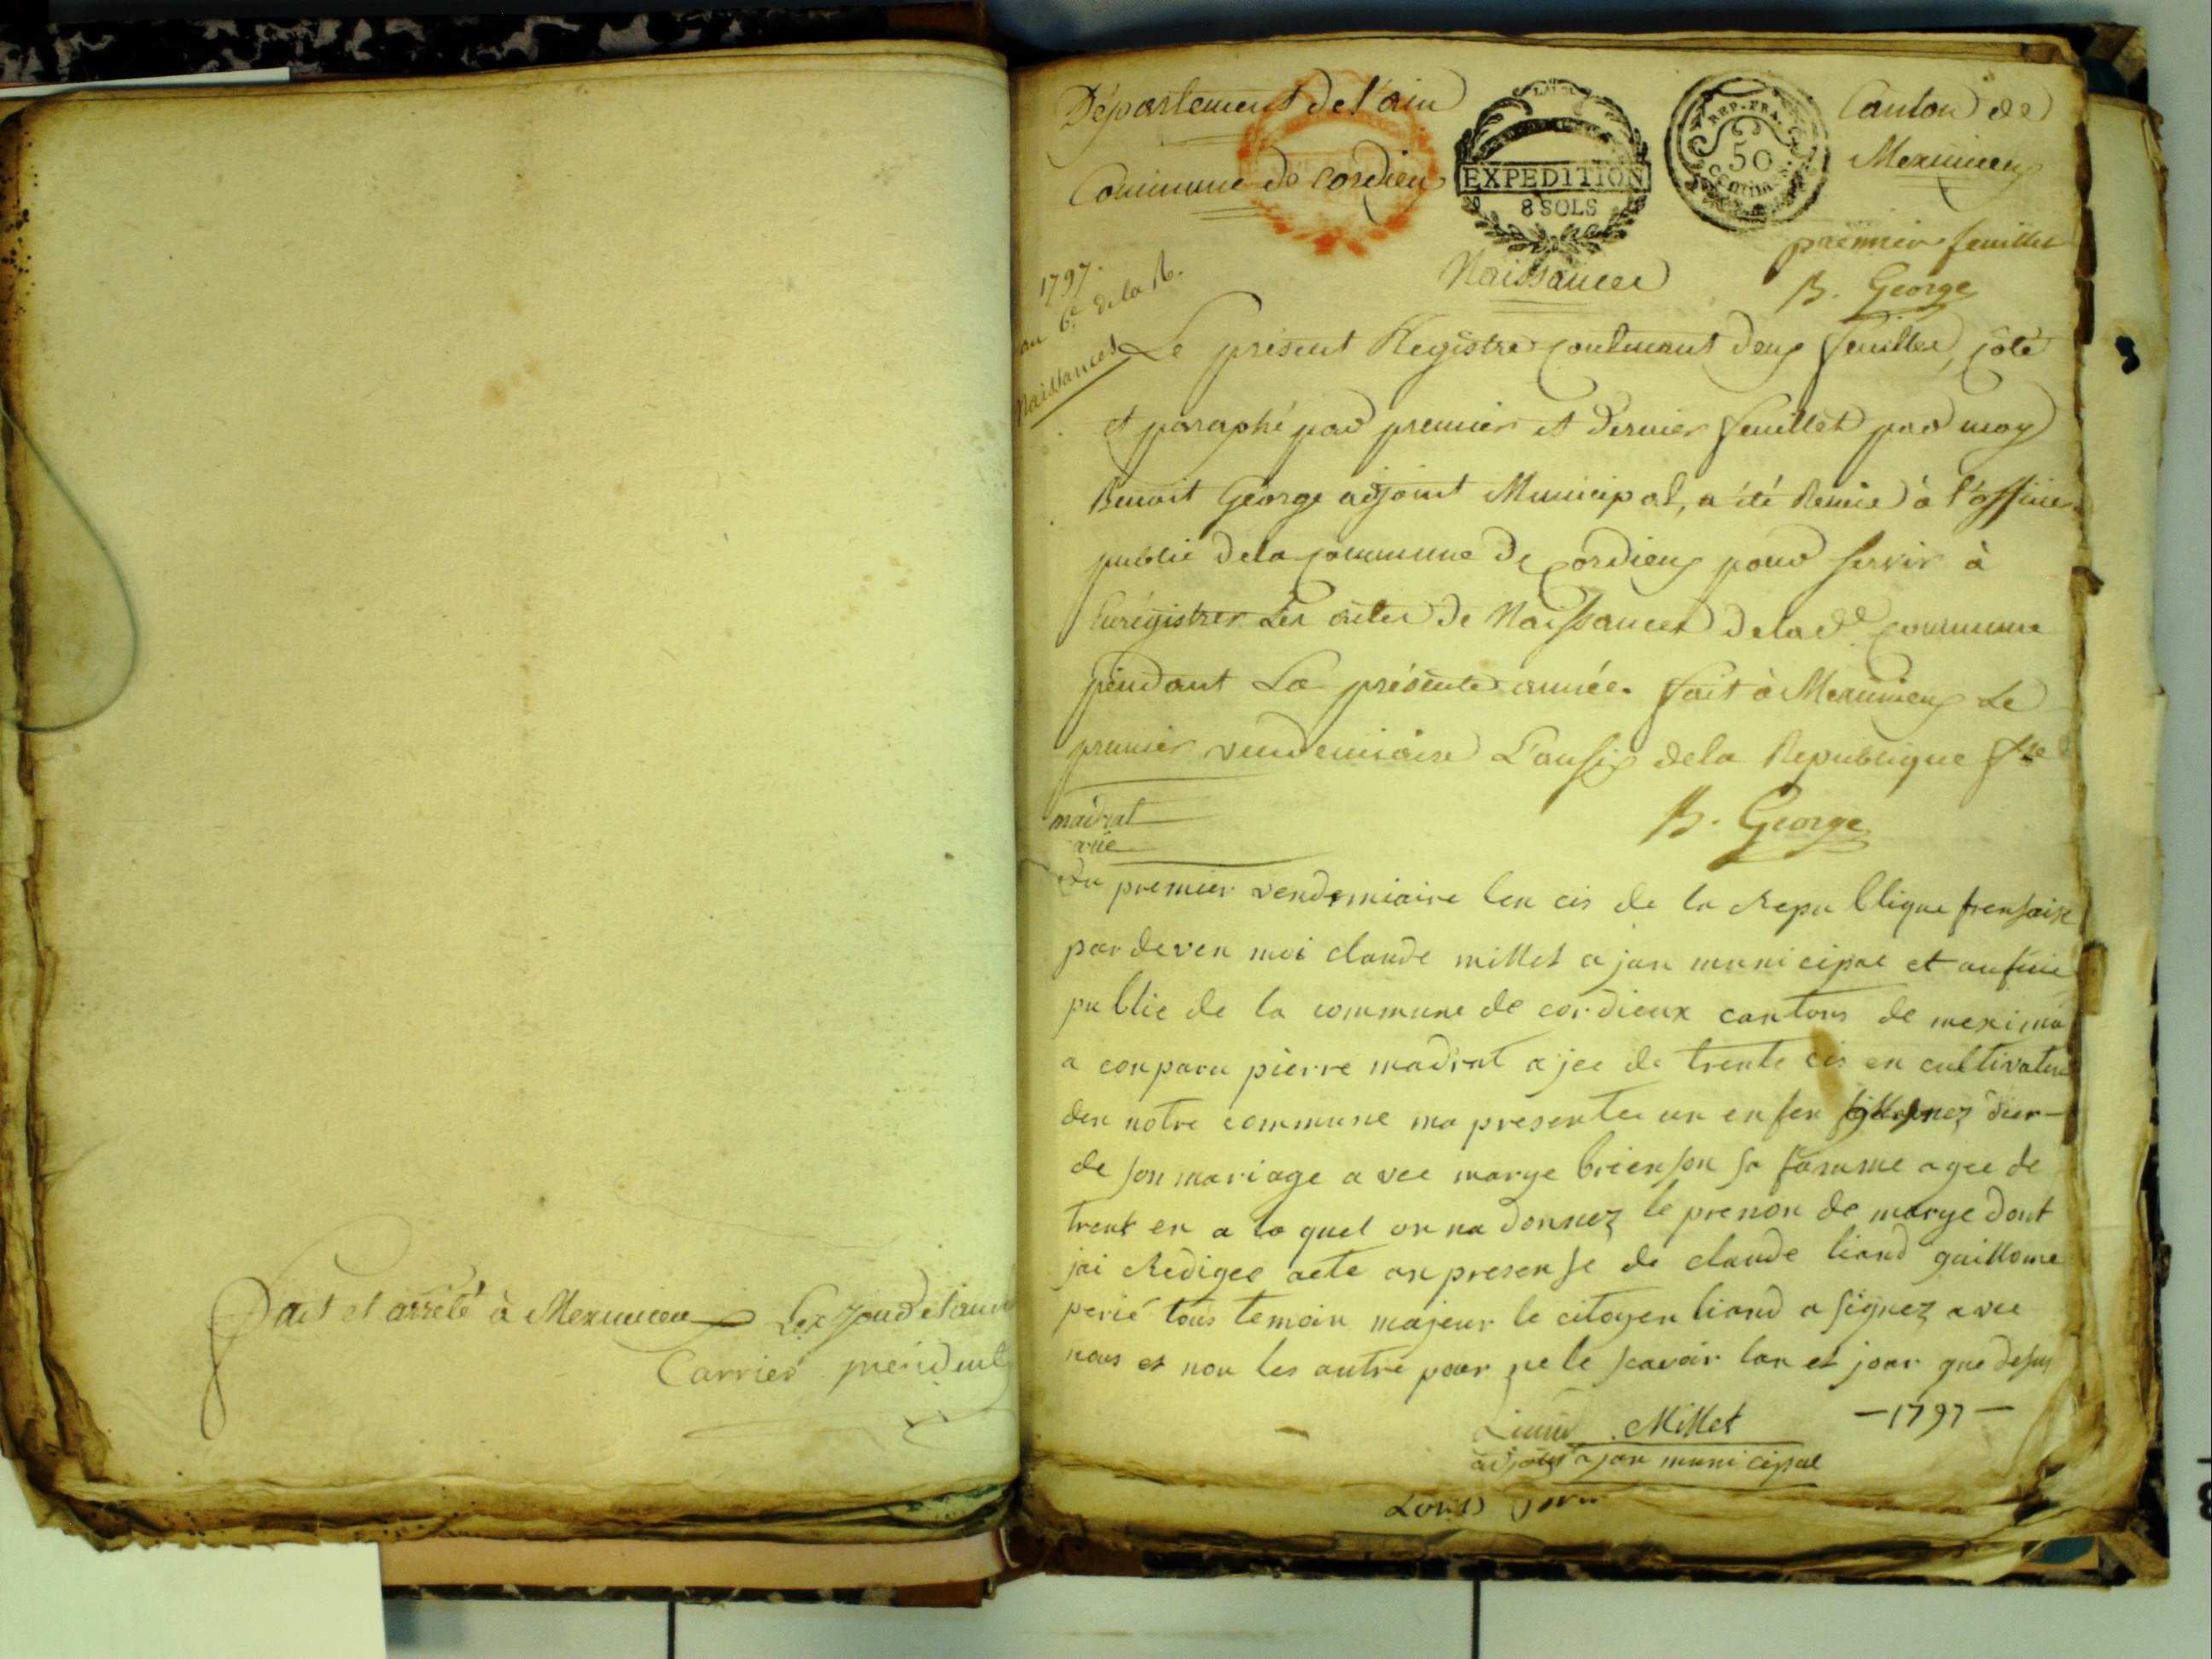 fait et arrêté à Meximieux les jour et an
Carrier président
Département de l'ain
Canton de
Commune de Cordieux
Meximieux
EXPEDITION
8 SOLS
REP. FRA.
50
centimes
premier feuillet
Naissances
B. George
1797.
an 6e de la R.
Naissances
Le présent Registre contenant deux feuilles, côté
et paraphé par premier et dernier feuillet par moy
Benoit George adjoint Municipal, a été Remis à l'officier
public de la commune de Cordieux pour servir à
Enrégistrer Les actes de Naissances de la de commune
pendant La présente année. fait à Meximieux Le
premier vendemiaire L'an six de la Republique fse
B. George
madrat
du premier vendemiaire len cis de la Republique frensaise
par deven moi claude millet a jan municipal et aufisie
publie de la commune de cordieux cantons de meximie
a conparu pierre madrat a jee de trente cis en cultivateur
den notre commune ma presentee un enfen nez dier
de son mariage a vec marye brienson sa famme agee de
trent en a la quel on na donnez le prenon de marye dont
jai Redigee acte an presense de claude liand guillome
perié tous temoin majeur le citoyen liand a signez avec
nous et non les autre pour ne le scavoir lan et jour que desus
Liand Millet
—1797—
adjoint a jan municipal
Louis